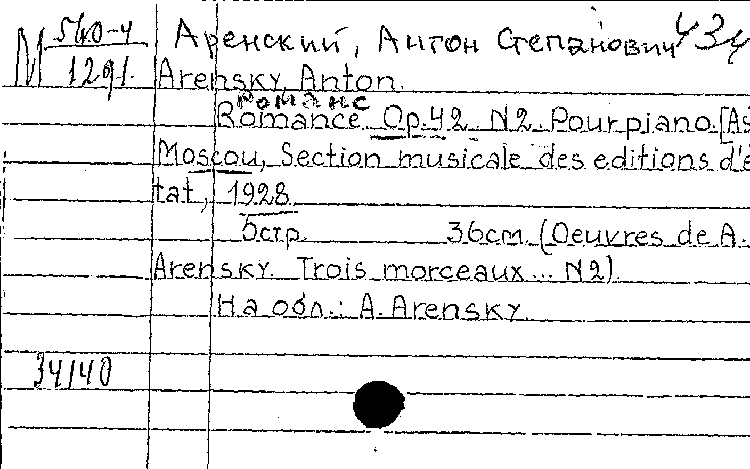 М 540-4 Аренский, Антон Степанович 434
1291. Arensky, Anton.
романс
Romance. Op.42 N2. Pour piano. [As
Moscou, Section musicale des editions d'é
tat, 1928
5стр. 36см. (Oeuvres de A.
Arensky. Trois morceaux... N2).
На обл.: A. Arensky.
34140